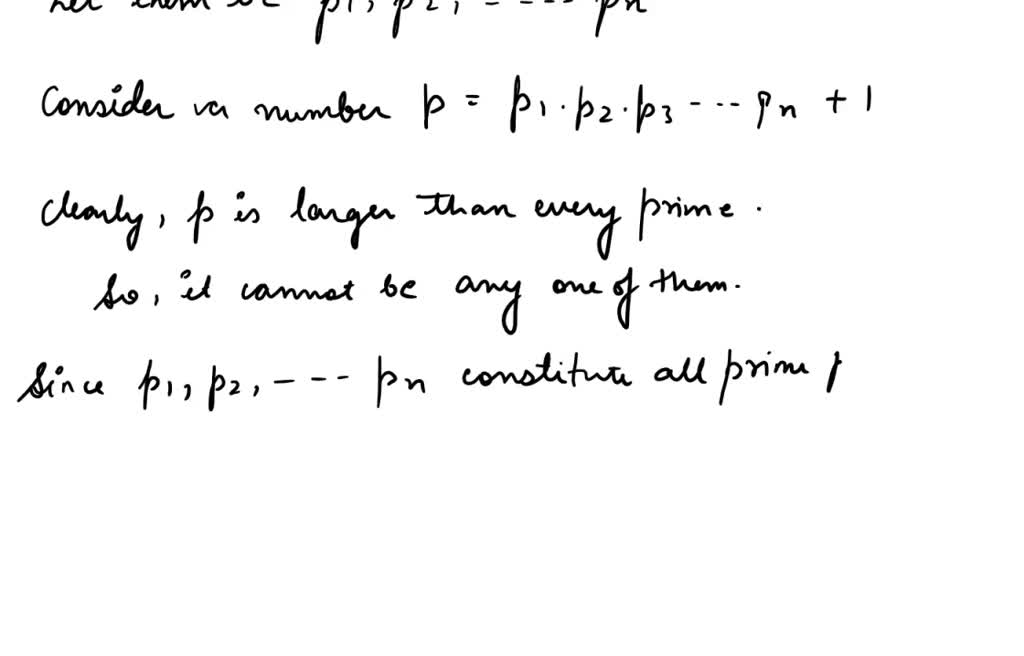 Let them be p1, p2, ----- pn
Consider a number p = p1·p2·p3 ----- pn + 1
clearly, p is larger than every prime.
So, it cannot be any one of them.
Since p1, p2, ---- pn constitute all prime